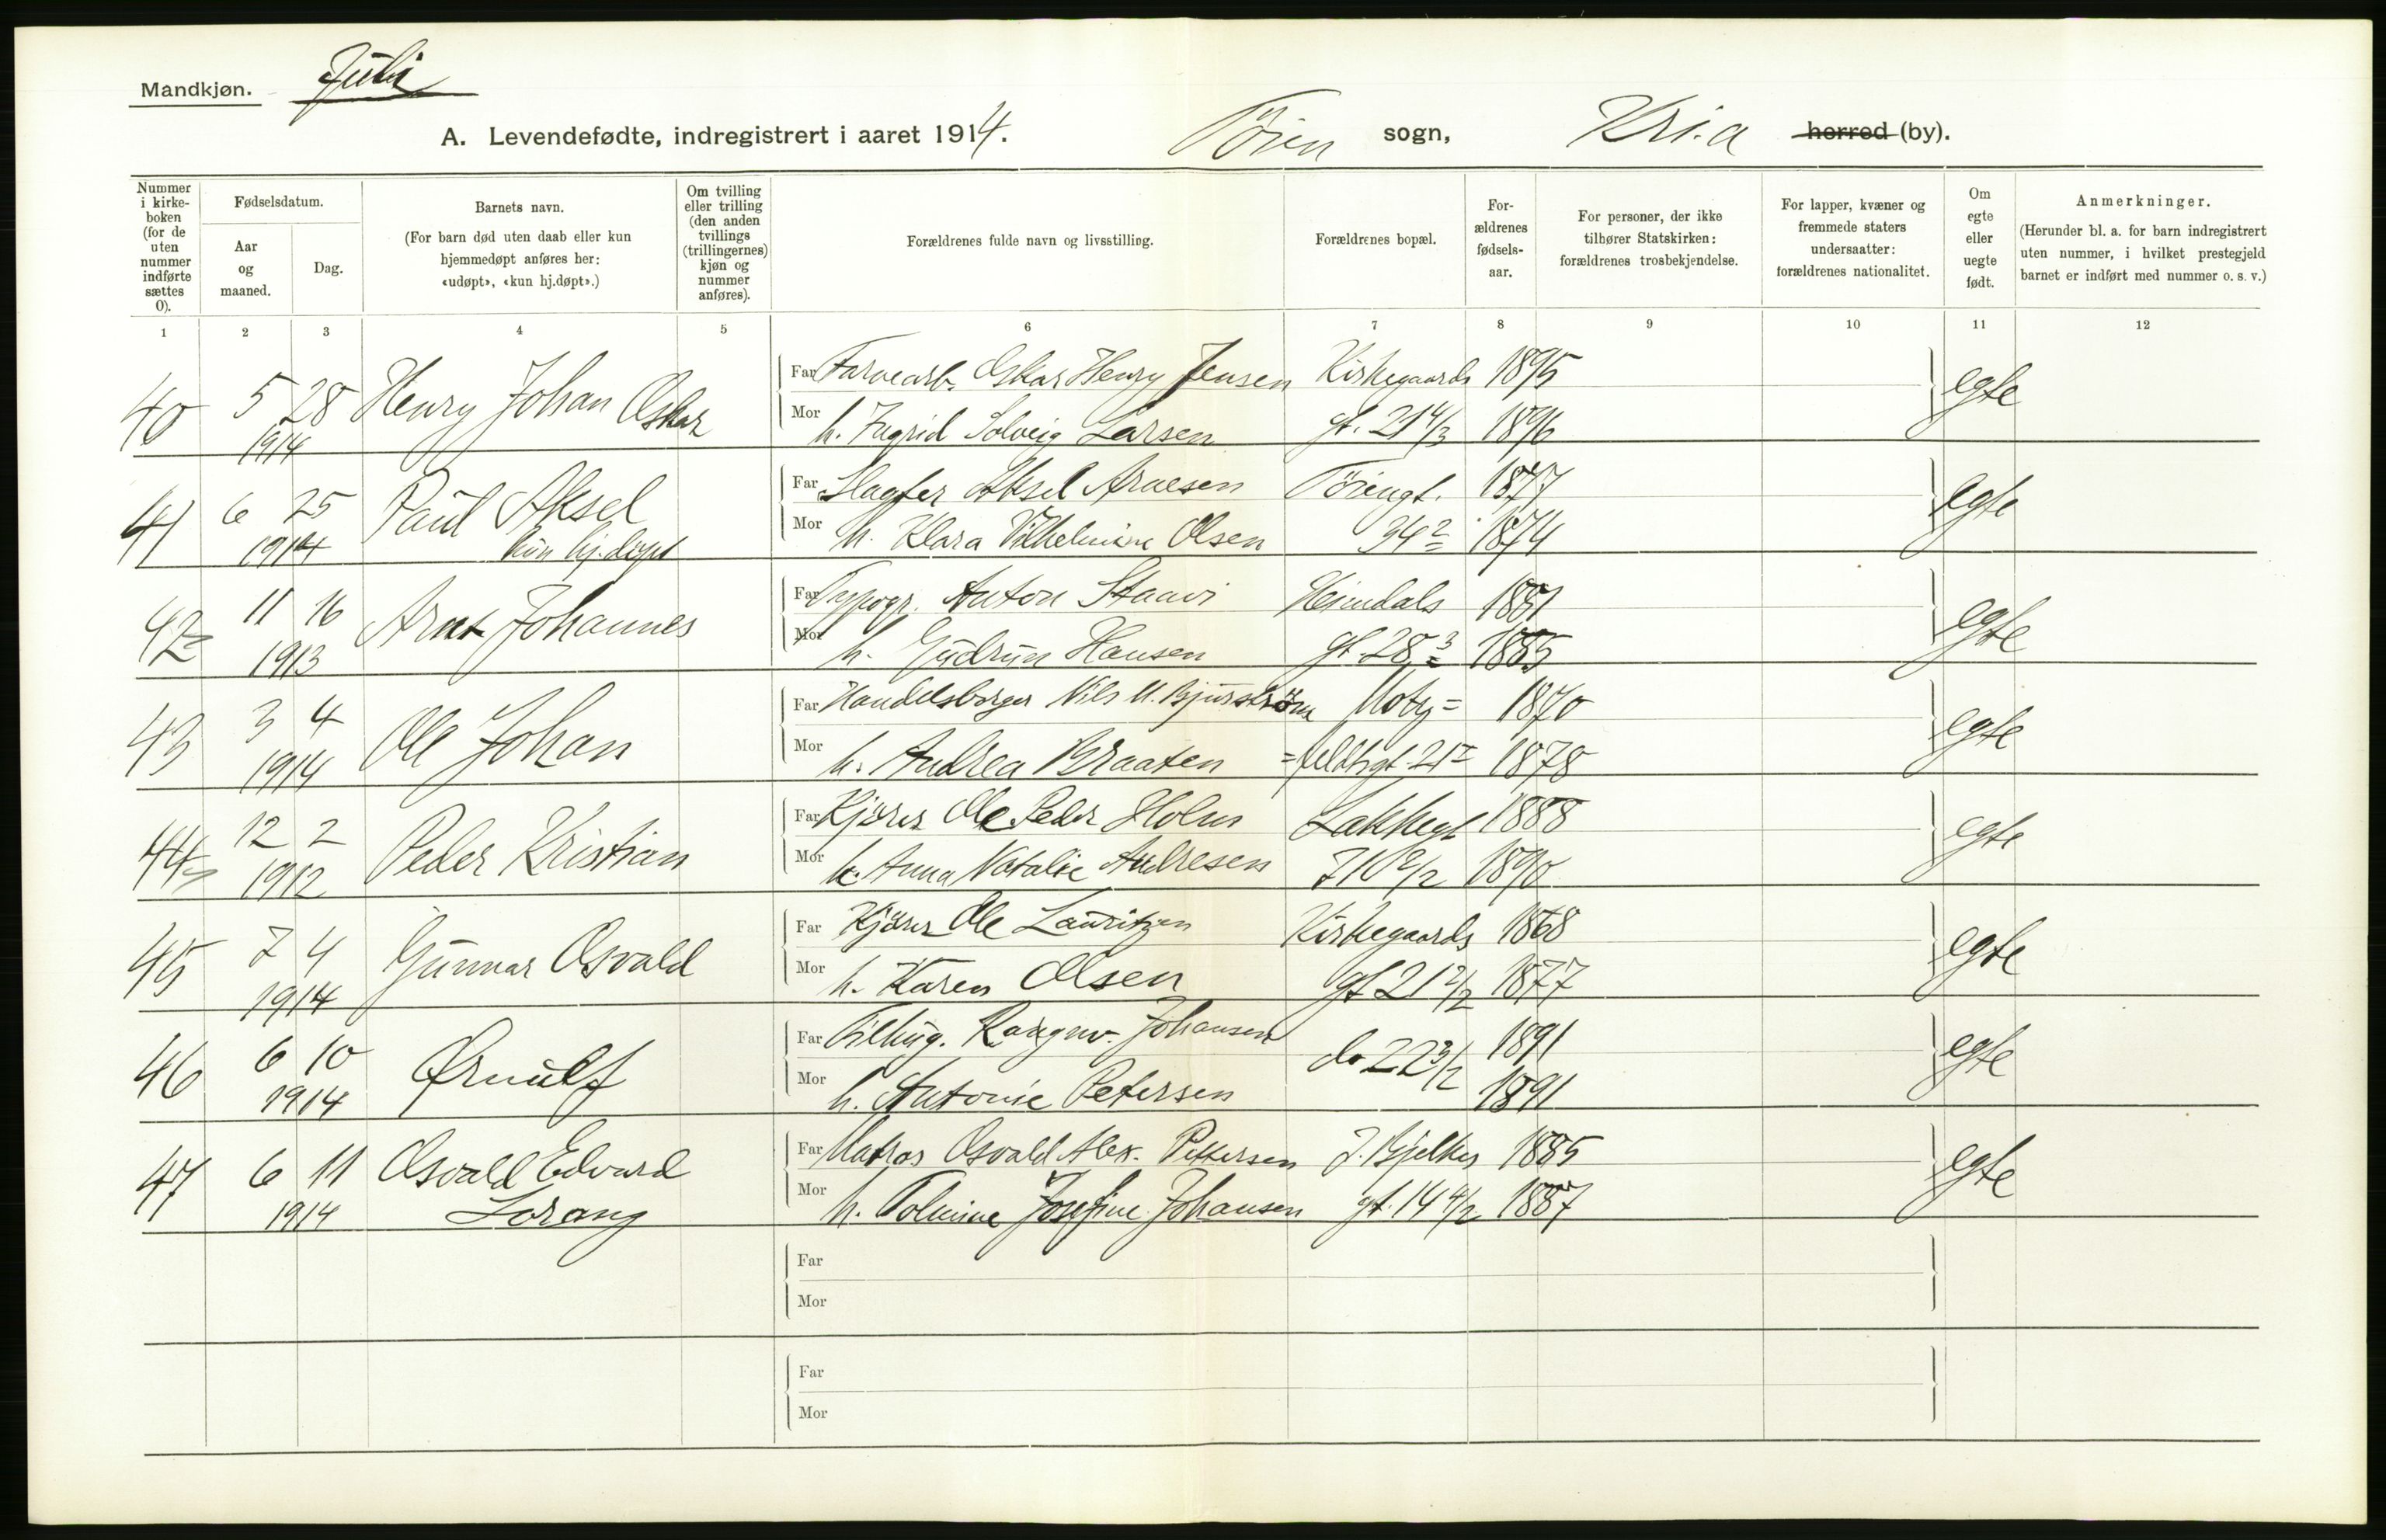 Mandkjøn. Juli
A. Levendefødte, indregistrert i aaret 1914. Tøien sogn, Kri.a herred (by).
Nummer i kirke-boken (for de uten nummer indførte sættes 0).
Fødselsdatum.
Aar og maaned.
Dag.
Barnets navn.
(For barn død uten daab eller kun hjemmedøpt anføres her: «udøpt», «kun hj.døpt».)
Om tvilling eller trilling (den anden tvillings (trillingernes) kjøn og nummer anføres).
Forældrenes fulde navn og livsstilling.
Forældrenes bopæl.
For-ældrenes fødsels-aar.
For personer, der ikke tilhører Statskirken: forældrenes trosbekjendelse.
For lapper, kvæner og fremmede staters undersaatter: forældrenes nationalitet.
Om egte eller uegte født.
Anmerkninger.
(Herunder bl. a. for barn indregistrert uten nummer, i hvilket prestegjeld barnet er indført med nummer o. s. v.)
1 2 3 4 5 6 7 8 9 10 11 12
40 5 28 Henry Johan Oskar Far Farvearb. Oskar Henry Jensen Kirkegaards 1895 egte
1914 Mor h. Ingrid Solveig Larsen gt. 21 4/3 1896
41 6 25 Paul Aksel Far Slagter Aksel Arnesen Töiengt. 1877 egte
1914 kun hj.døpt Mor h. Klara Vilhelmine Olsen 34 2 1874
42 11 16 Arnt Johannes Far Typogr. Anton Staavi Heimdals 1881 egte
1913 Mor h. Gudrun Hansen gt. 28 3 1885
43 3 4 Ole Johan Far Handelsborger Nils M. Bjurström Motz= 1870 egte
1914 Mor h. Andrea Braaten =feldtsgt. 21 1878
44 12 2 Peder Kristian Far Kjører Ole Peder Holm Lakkegt 1888 egte
1912 Mor h. Anna Natalie Andresen 71 2/2 1890
45 7 4 Gunnar Osvald Far Kjører Ole Lauritzen Kirkegaards 1868 egte
1914 Mor h. Karen Olsen gt 21 2/2 1877
46 6 10 Ørnulf Far Filhug. Rangnv. Johansen do 22 3/2 1891 egte
1914 Mor h. Antonie Petersen 1891
47 6 11 Osvald Edvard Far Matros Osvald Alex. Pettersen J. Bjelkes 1885 egte
1914 Lorang Mor h. Tolmine Josefine Johansen gt. 14 4/2 1887
Far
Mor
Far
Mor